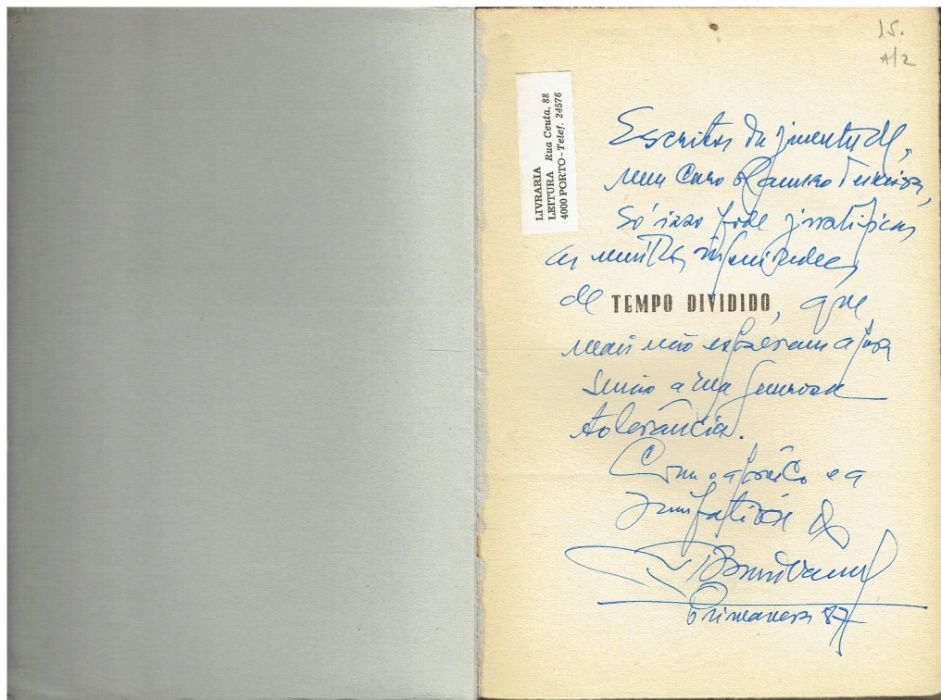 15.
A/2
LIVRARIA
LEITURA Rua Ceuta, 88
4000 PORTO - Telef. 24576
Escritos da juventude,
meu Caro Ramiro Teixeira,
Só isso pode justificar
as muitas infinidades
de TEMPO DIVIDIDO, que
mais não esperam agora
senão a sua generosa
tolerância.
Com o apreço e a
simpatia de
Primavera 87